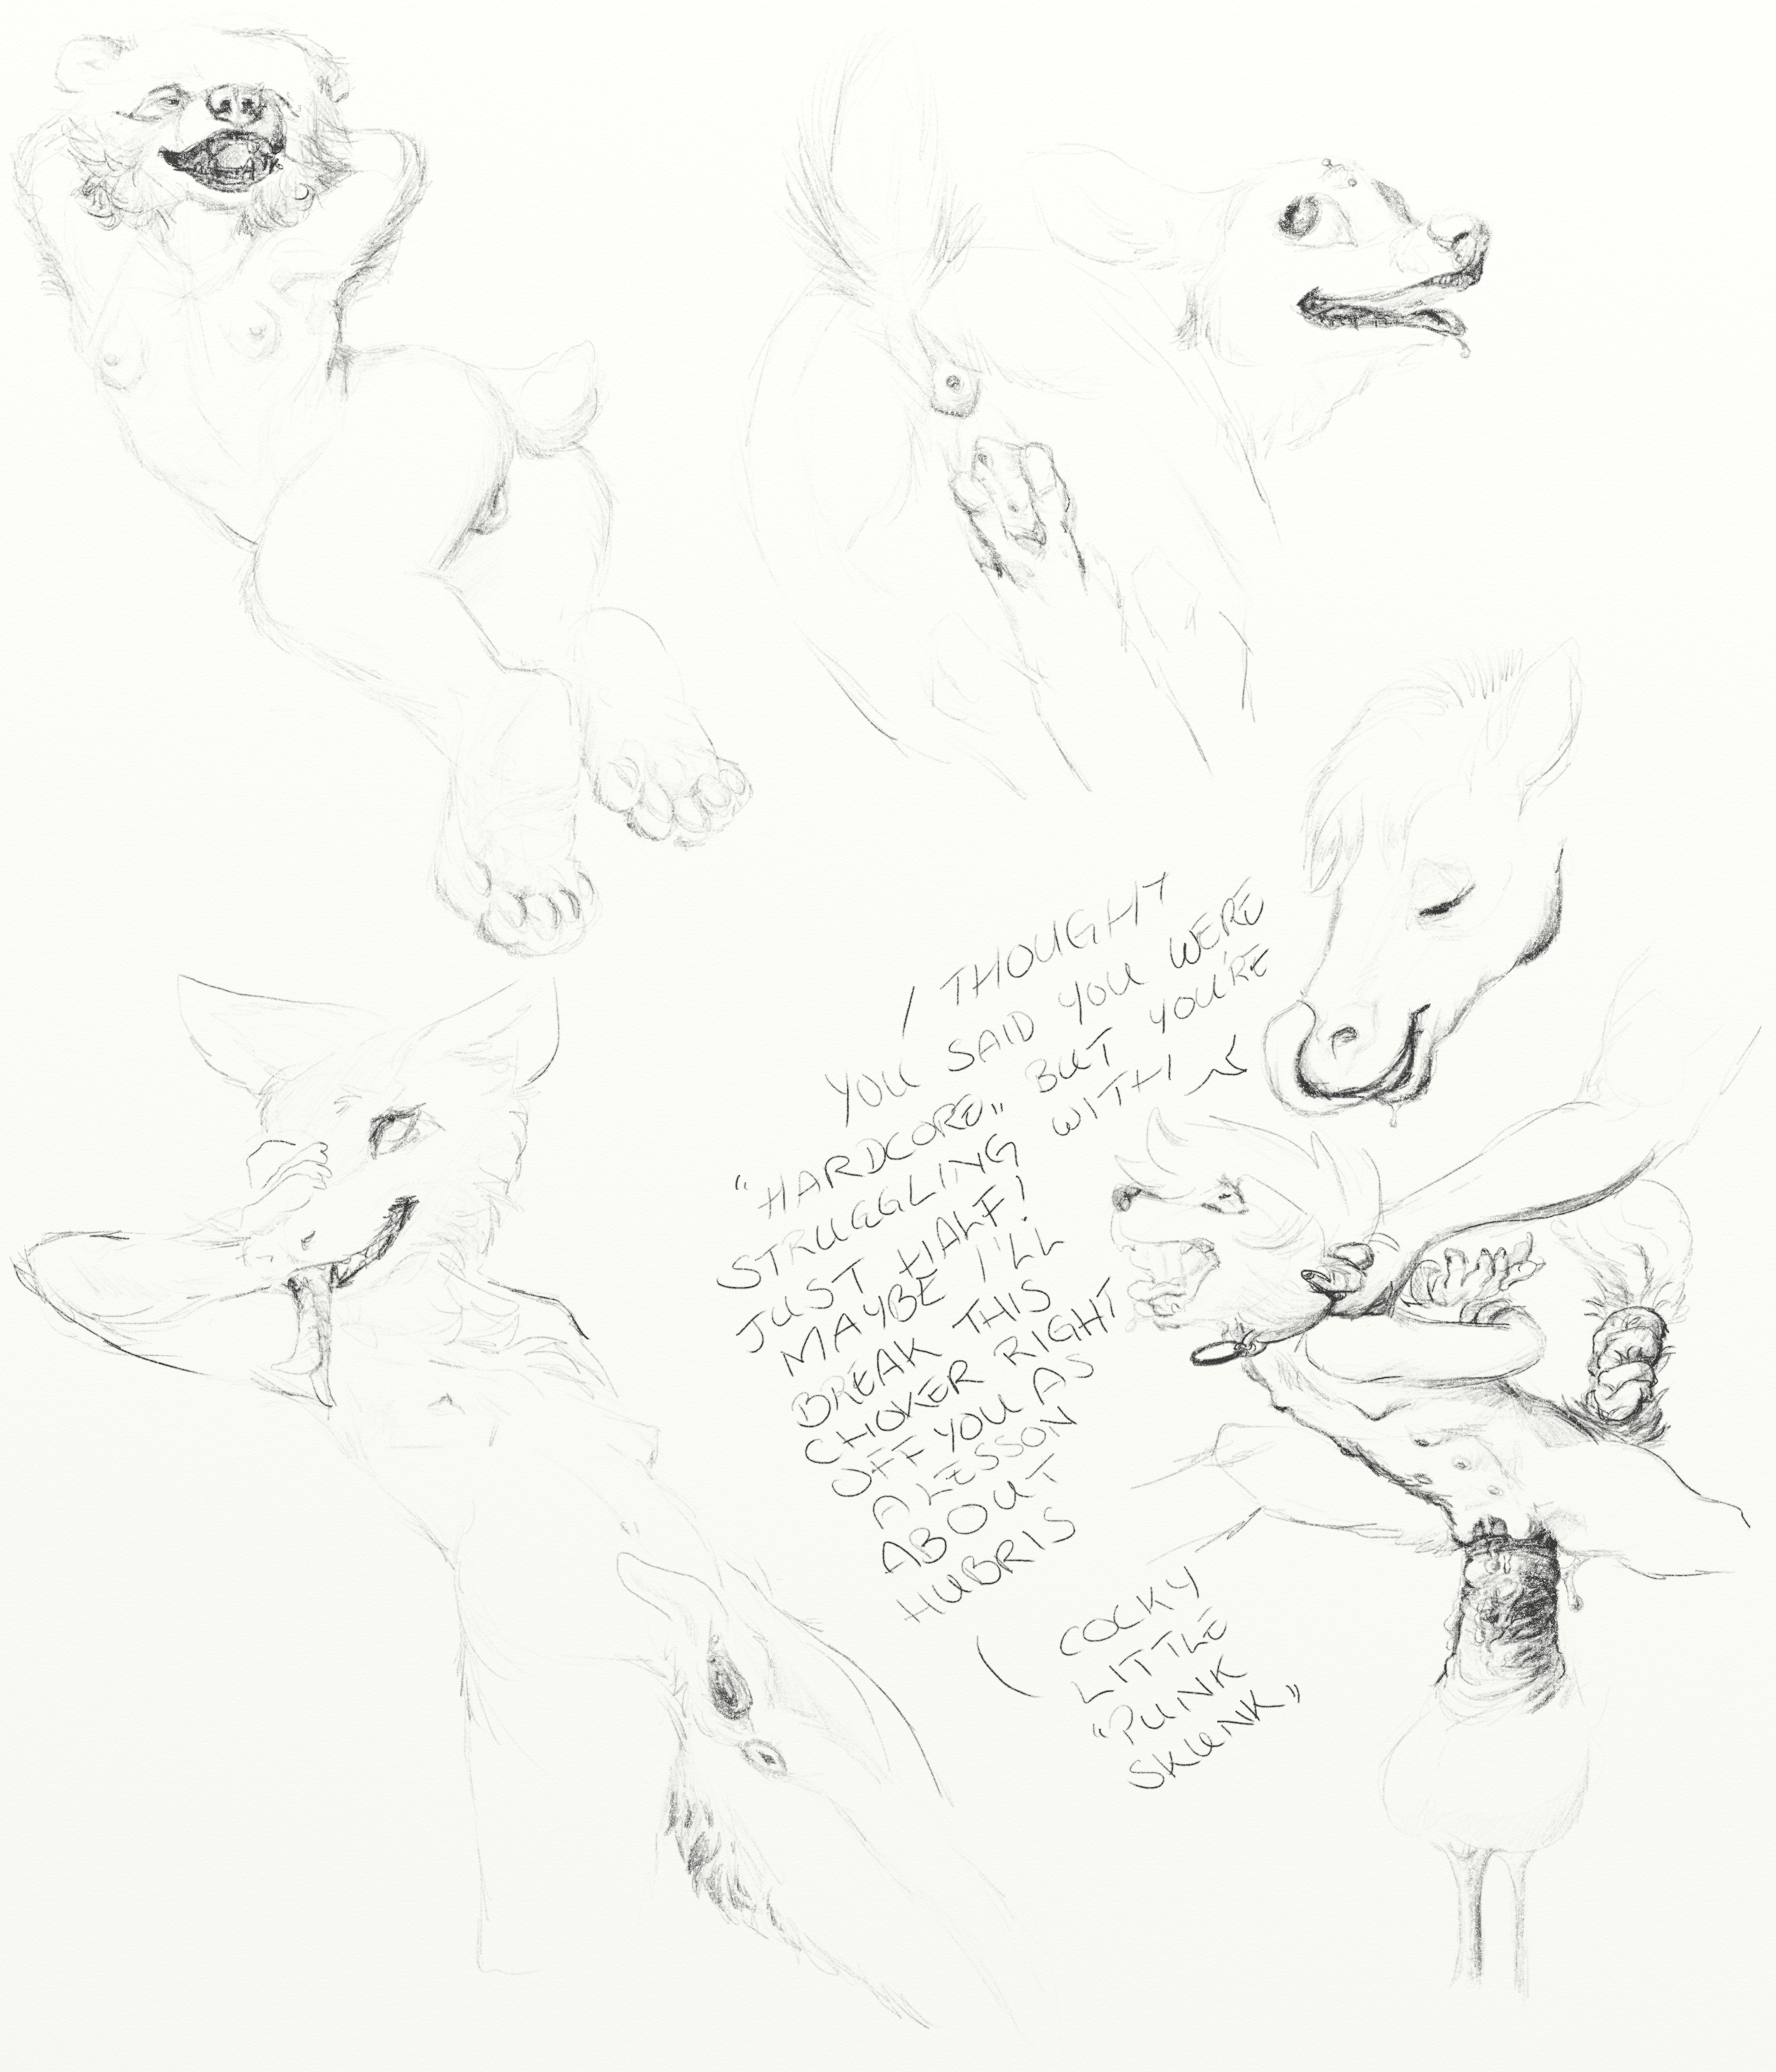 I THOUGHT
YOU SAID YOU WERE
"HARDCORE" BUT YOU'RE
STRUGGLING WITH
JUST HALF!
MAYBE I'LL
BREAK THIS
CHOKER RIGHT
OFF YOU AS
A LESSON
ABOUT
HUBRIS
COCKY
LITTLE
"PUNK
SKUNK"